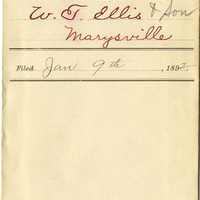 W. T. Ellis & Son
Marysville
Filed Jan 9th, 1892